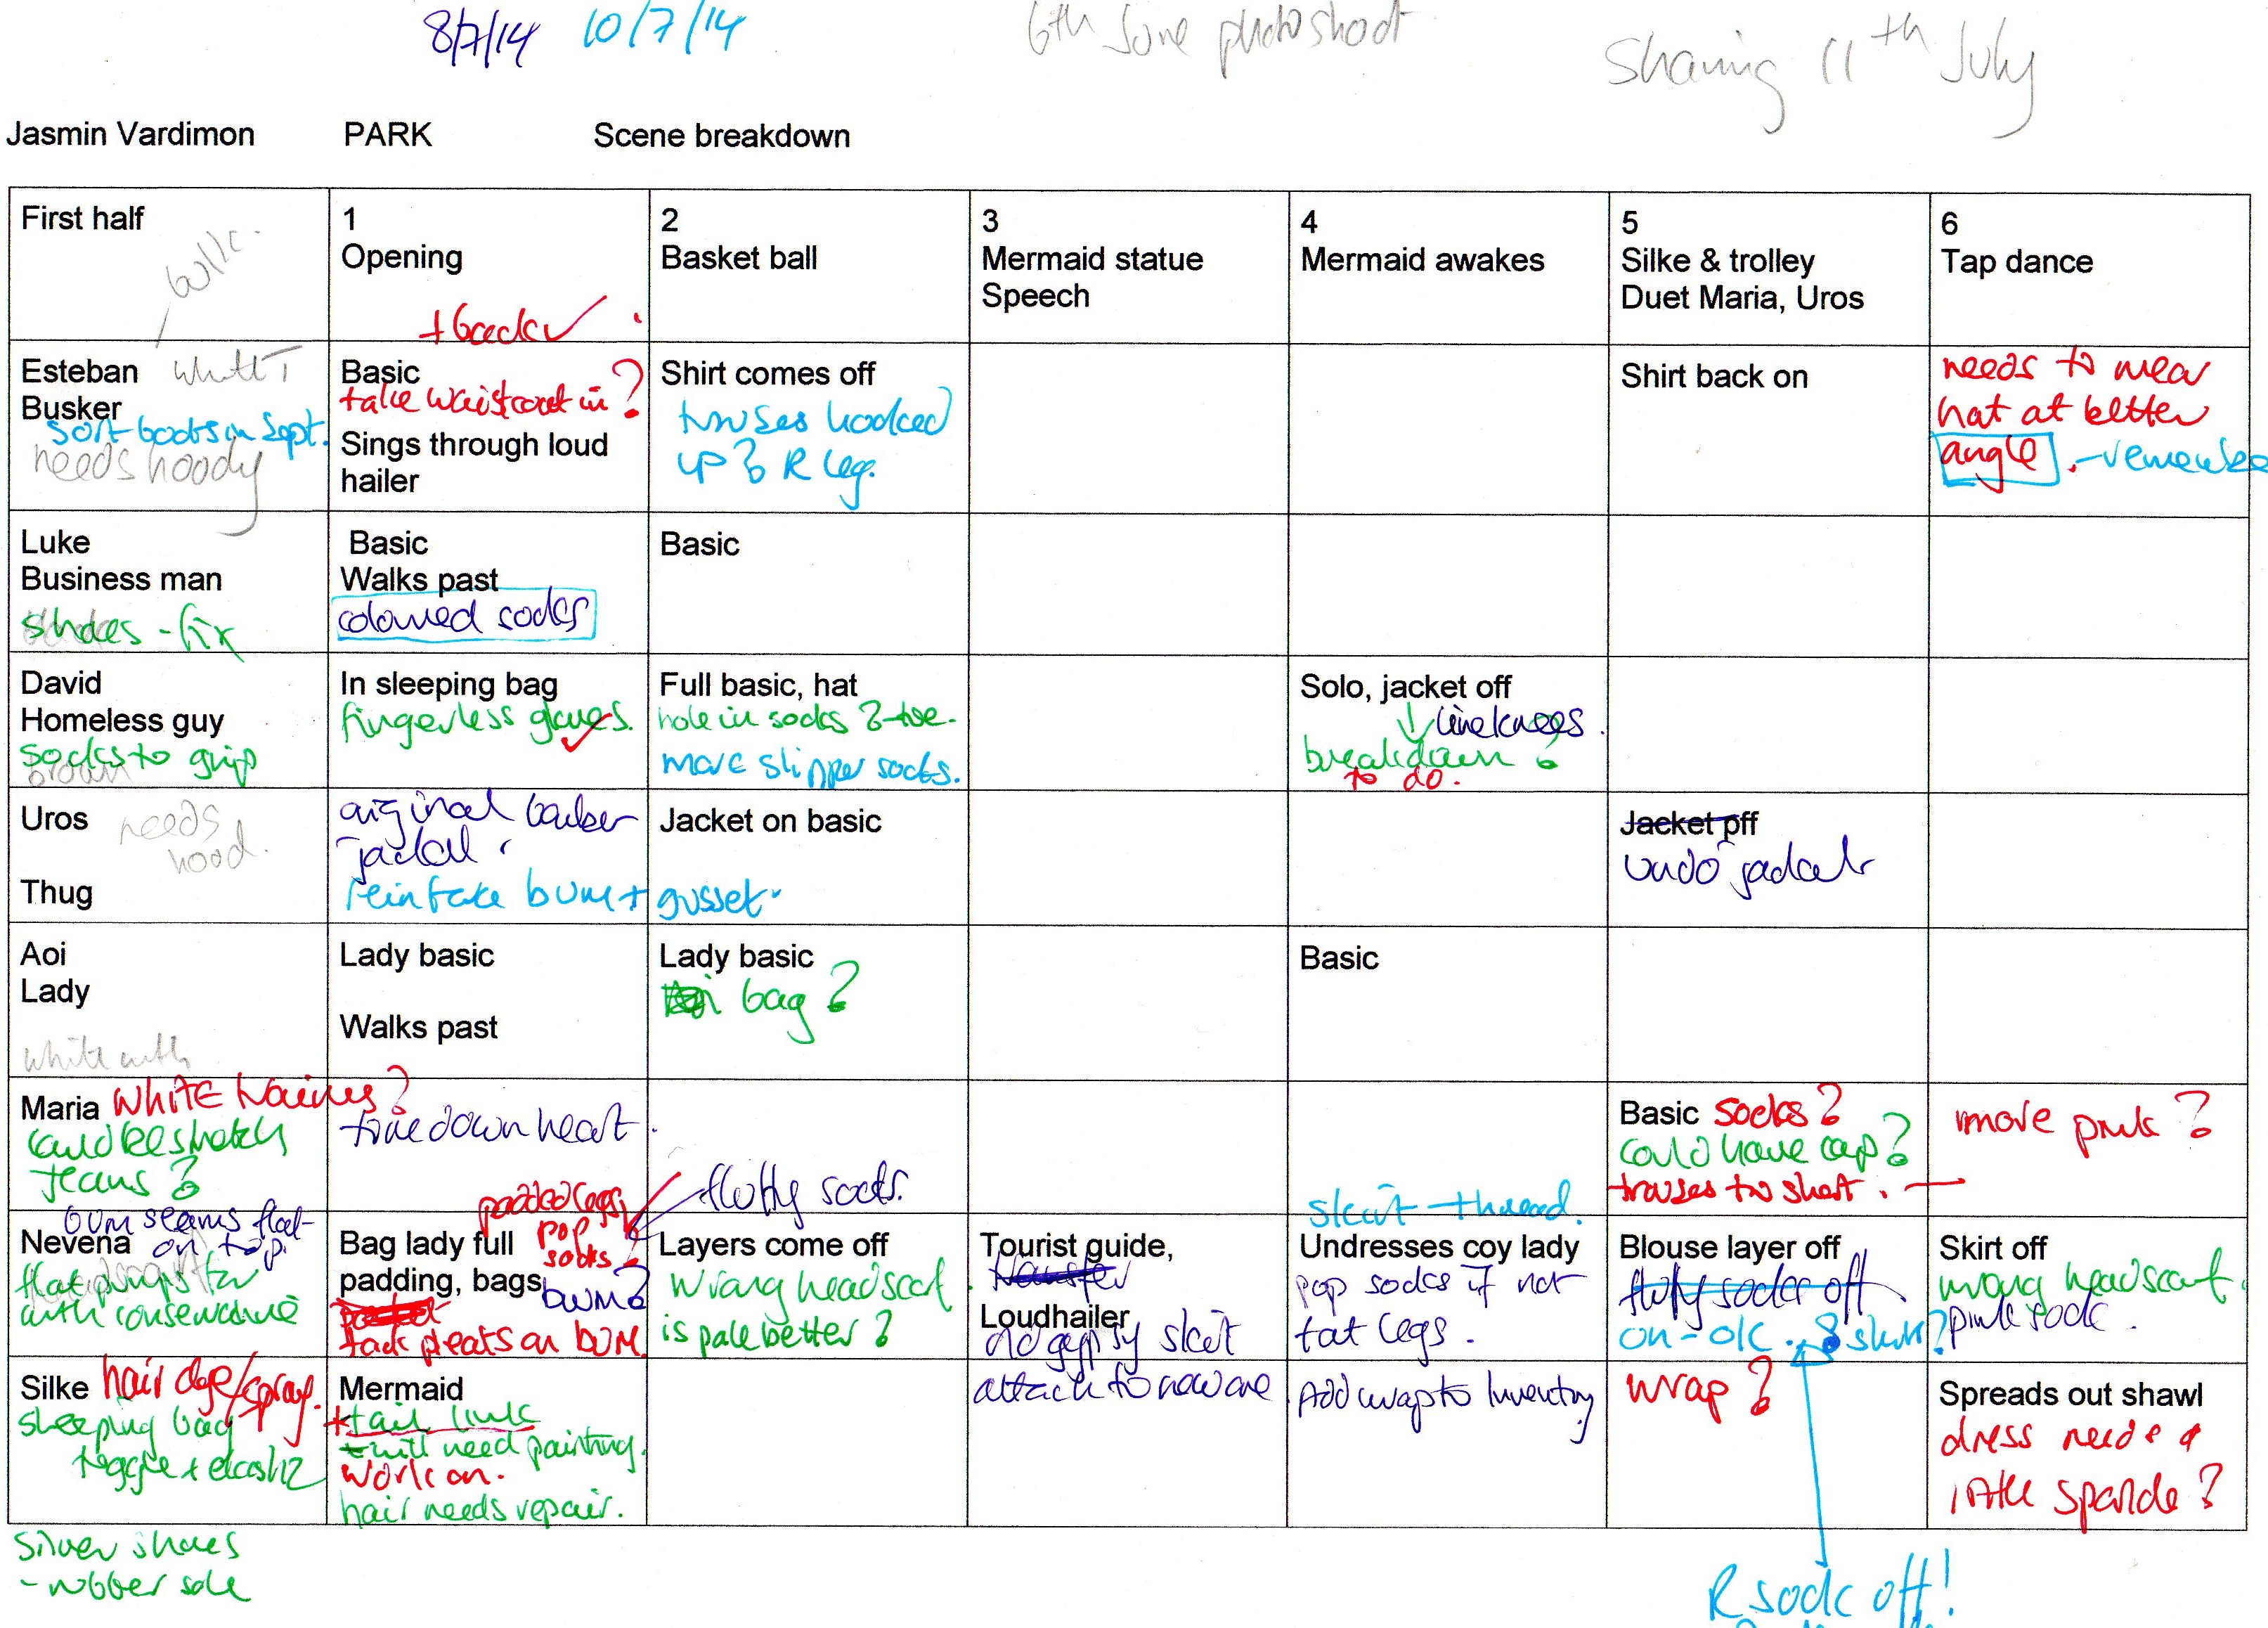 8/7/14 10/7/14
6th June photoshoot
Sharing 11th July
Jasmin Vardimon PARK Scene breakdown
First half
1
Opening
2
Basket ball
3
Mermaid statue
Speech
4
Mermaid awakes
5
Silke & trolley
Duet Maria, Uros
6
Tap dance
Esteban
Busker
soft boots in Sept.
needs hoody
Basic
take waistcoat in?
Sings through loud
hailer
Shirt comes off
up to R leg.
Shirt back on
needs to wear
hat at better
angle
Luke
Business man
shoes - fix
Basic
Walks past
coloured socks
Basic
David
Homeless guy
socks to grip
brown
In sleeping bag
fingerless gloves.
Full basic, hat
hole in socks ? toe.
more slipper socks.
Solo, jacket off
line knees.
breakdown ?
to do.
Uros
needs
hood.
Thug
original
jacket.
bum + gusset.
Jacket on basic
Jacket off
undo jacket
Aoi
Lady
white with
Lady basic
Walks past
Lady basic
bag ?
Basic
Maria WHITE trainers?
could be stretch
jeans ?
tone down heart.
Basic socks?
could have cap?
trouses too short.
more pink ?
bum seams flat
on top.
Nevena
flat pumps for
padded legs
pop
socks
Bag lady full
padding, bags
bum?
tack pleats on bum.
fluffy socks.
Layers come off
wrong headscarf.
is pale better ?
Tourist guide,
Loudhailer
old gypsy skirt
attach to new one
skirt - thread.
Undresses coy lady
pop socks if not
fat legs.
Blouse layer off
fluffy socks off
on - ok. skirt?
Skirt off
wrong headscarf.
pink sock.
Silke hair dye/spray.
sleeping bag
toggle + elastic
Mermaid
+ tail
will need painting.
work on.
hair needs repair.
Add wrap to Inventory
wrap ?
Spreads out shawl
dress needs a
little sparkle?
silver shoes
- rubber sole
R sock off!